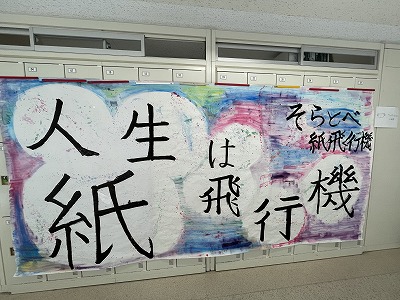 人生は
紙飛行機
そらとべ
紙飛行機